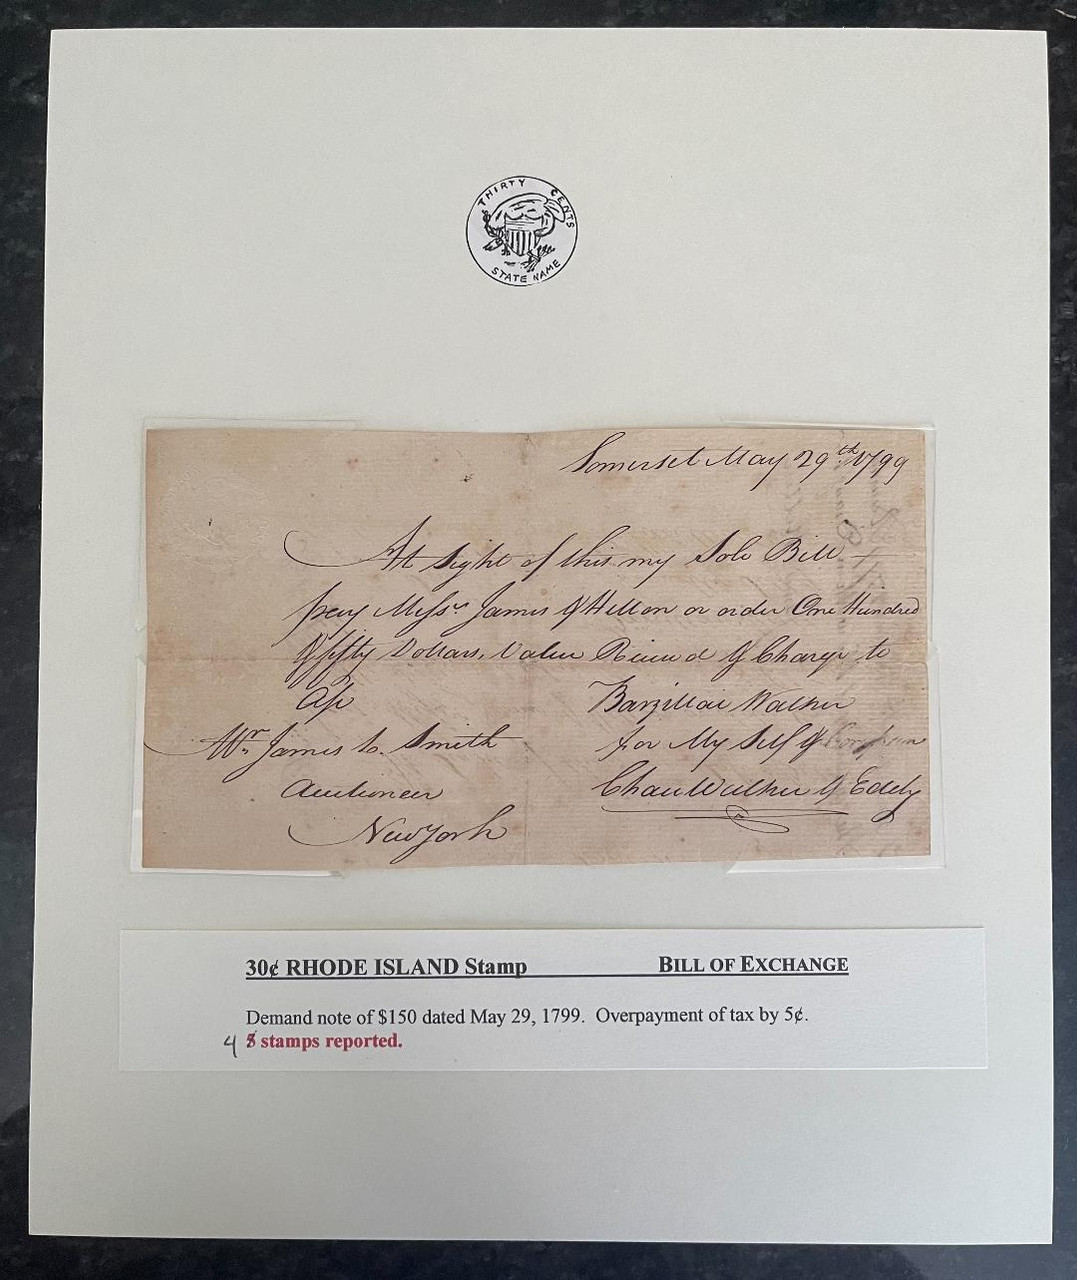 THIRTY CENTS
STATE NAME
Somerset May 29th 1799
At Sight of this my Sole Bill
pay Messrs James & Hilton or order One Hundred
& fifty Dollars, Value Received & Charge to
a/c
Barzillai Walker
Mr James Smith
for My Self &
Auctioneer
Walker & Eddy
New York
30¢ RHODE ISLAND Stamp BILL OF EXCHANGE
Demand note of $150 dated May 29, 1799. Overpayment of tax by 5¢.
4 stamps reported.